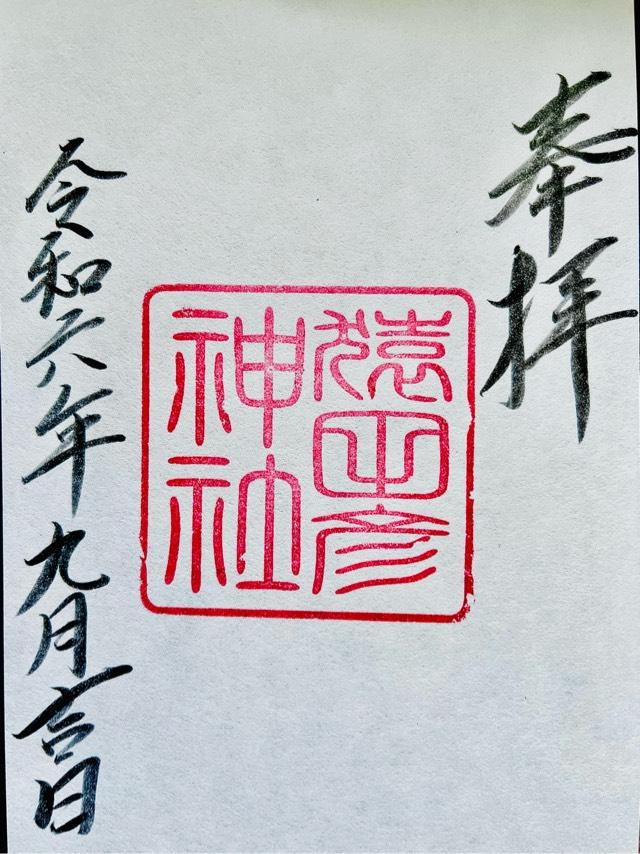 奉拝
猿田彦
神社
令和六年九月吉日